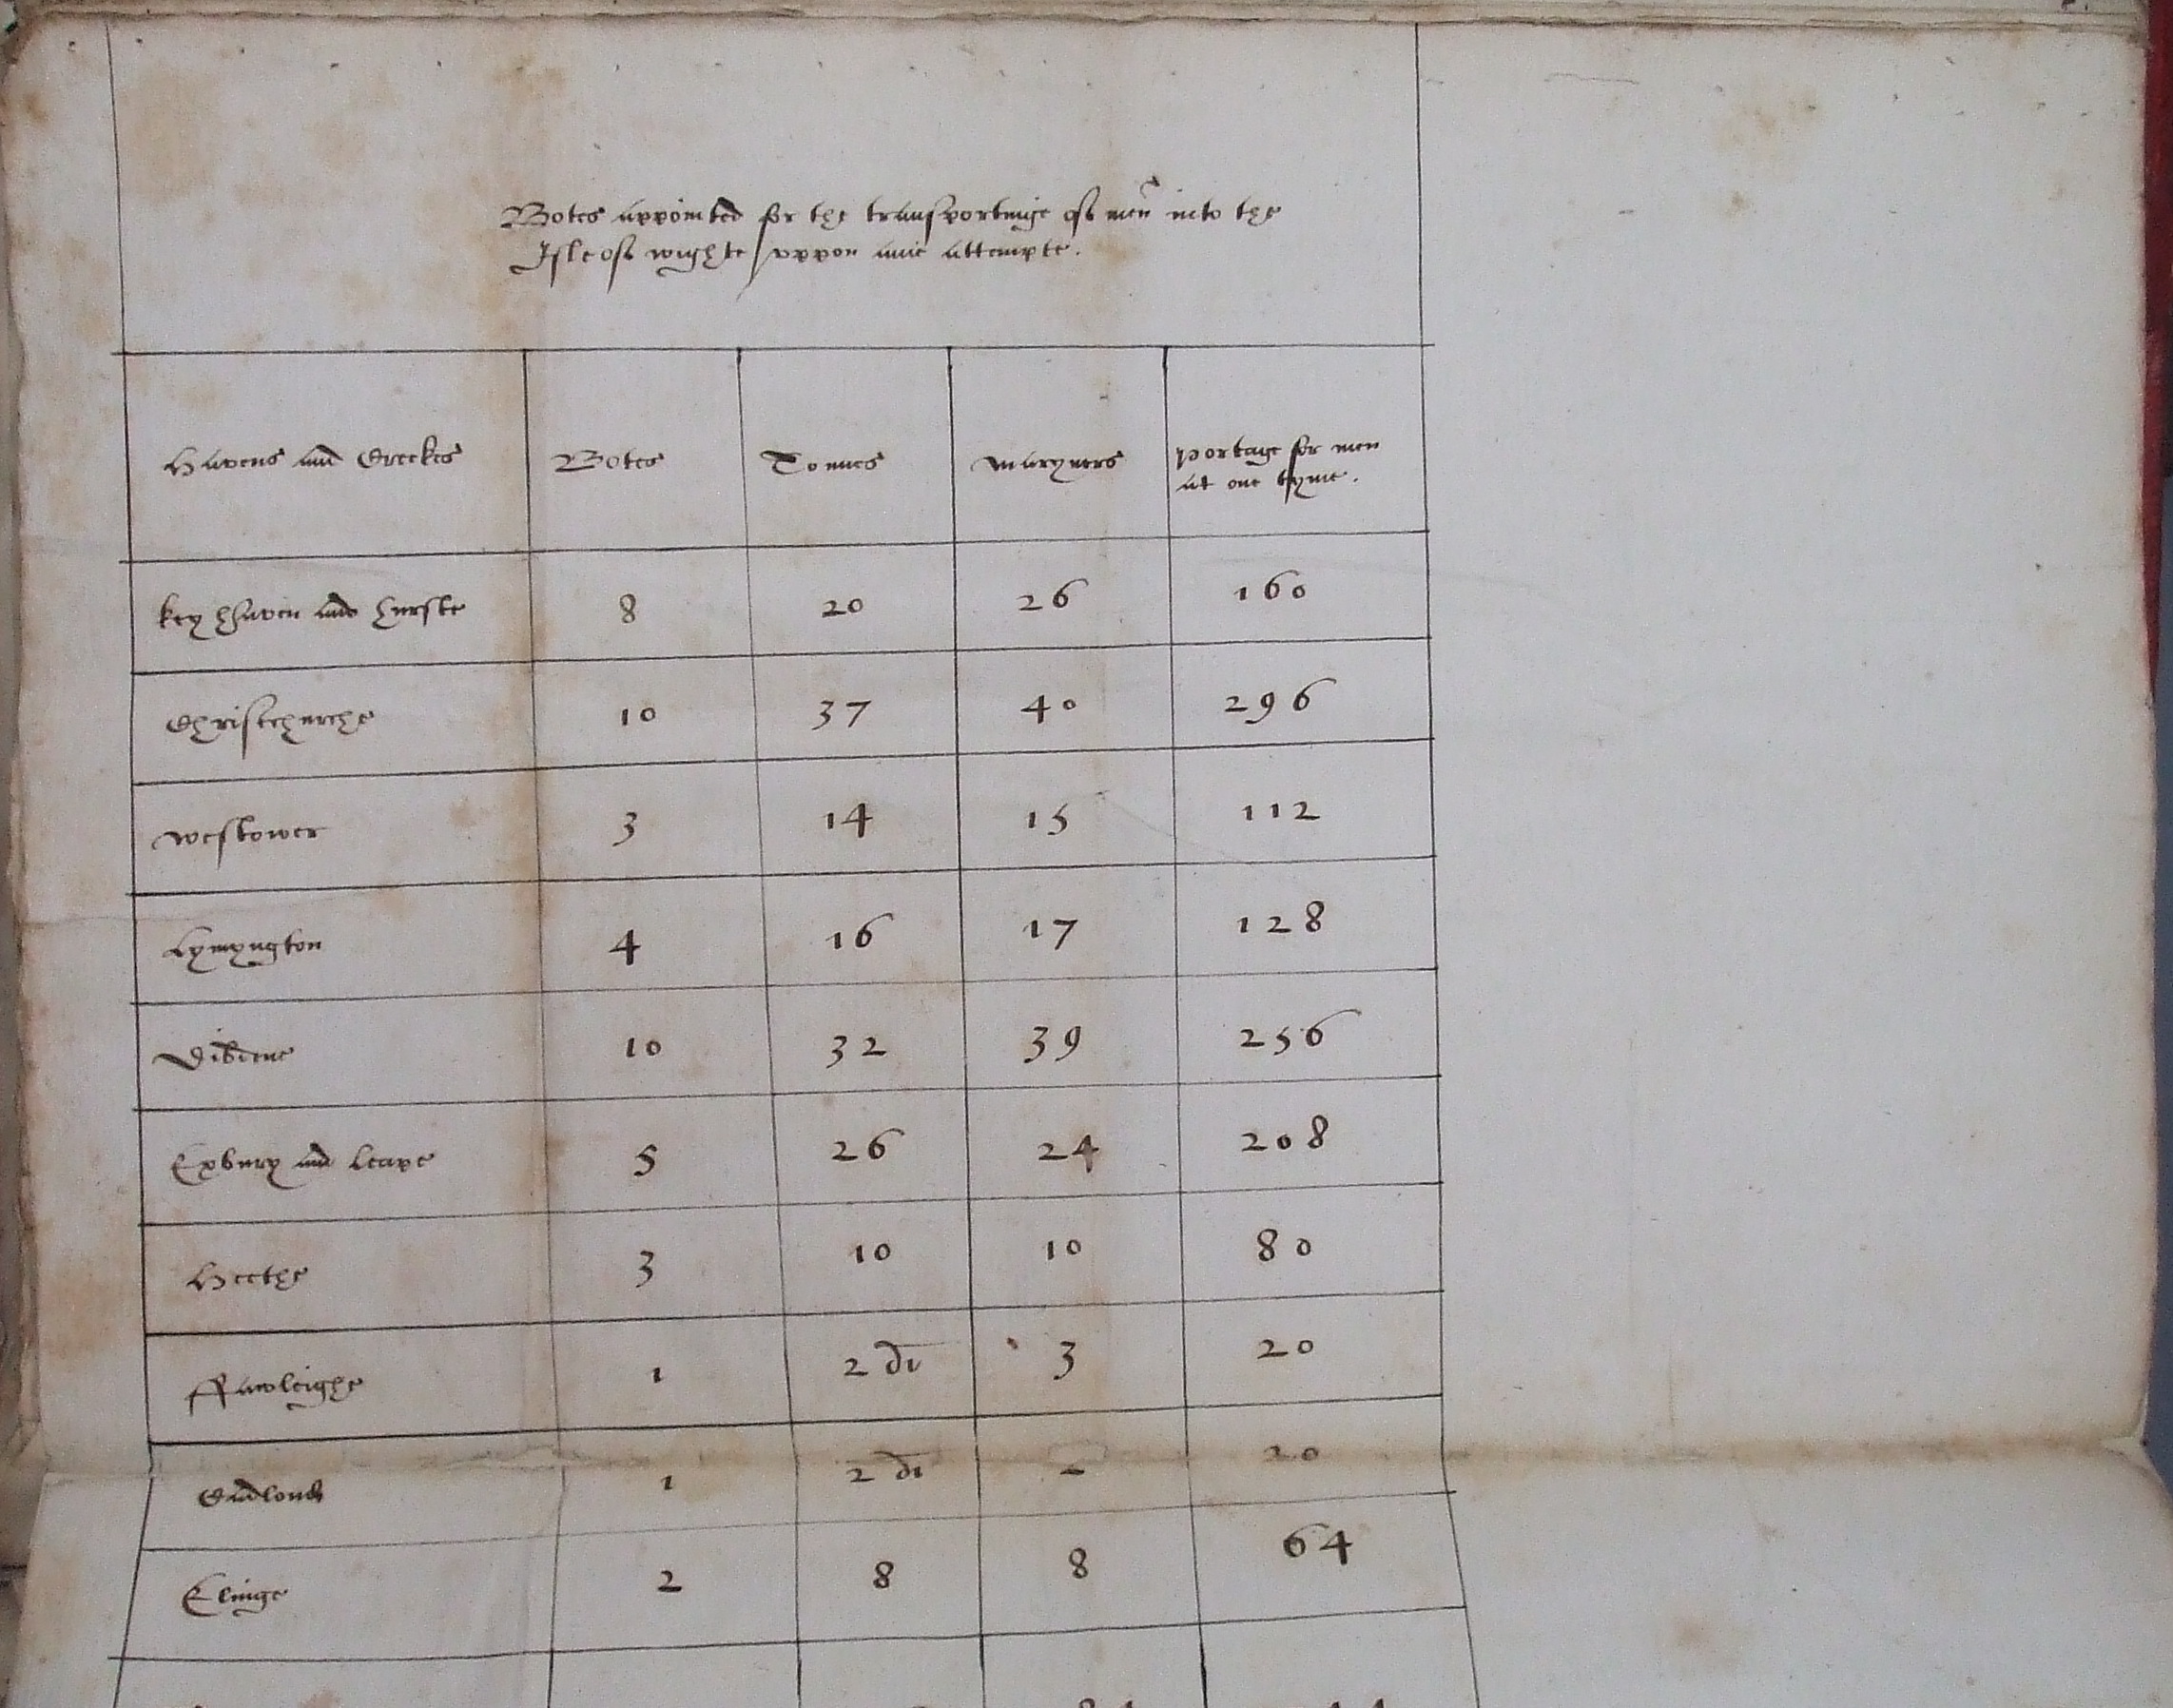 Botes appointed for the transportinge of men into the
Isle of wighte / uppon anie attempte.
Havens and Creekes Botes Tonnes Maryners portage for men
at one tyme.
key haven and hurste 8 20 26 160
Christchurche 10 37 40 296
Westover 3 14 15 112
Lymyngton 4 16 17 128
Dibdene 10 32 39 256
Exbury and Leape 5 26 24 208
Heethe 3 10 10 80
ffawleighe 1 2 di 3 20
1 2 di - 20
Elinge 2 8 8 64